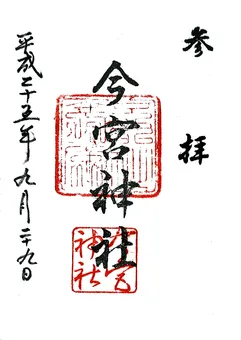 参拝
今宮神社
平成二十五年九月二十九日